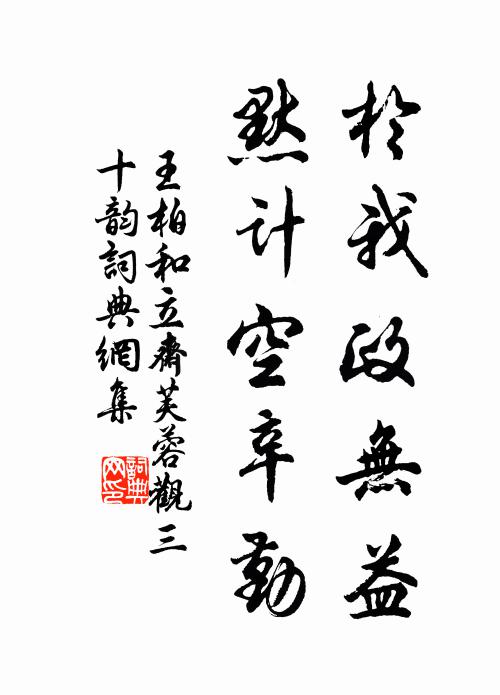 於我政無益
默计空辛勤
王柏和立齋芙蓉觀三
十韵詞典網集
詞典
网印